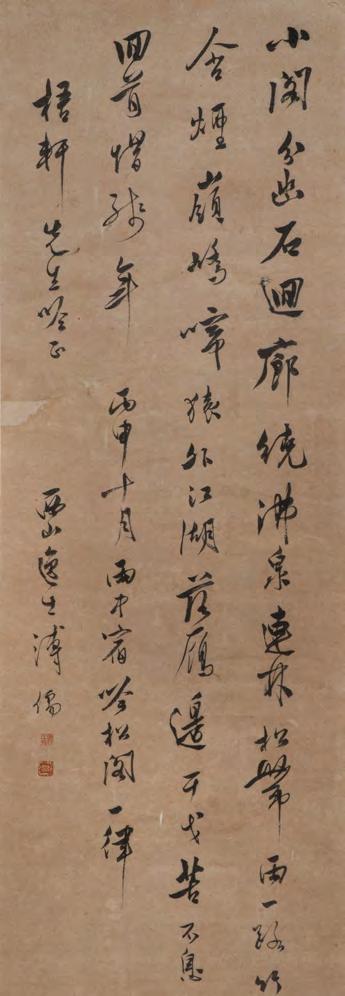 小閣分幽石迴廊繞沸泉連林松帶雨一路竹
含煙嶺嬌啼猿外江湖落雁邊干戈苦不息
回首惜殘年 丙申十月雨中宿吟松閣一律
梧軒先生吟正
西山逸士溥儒